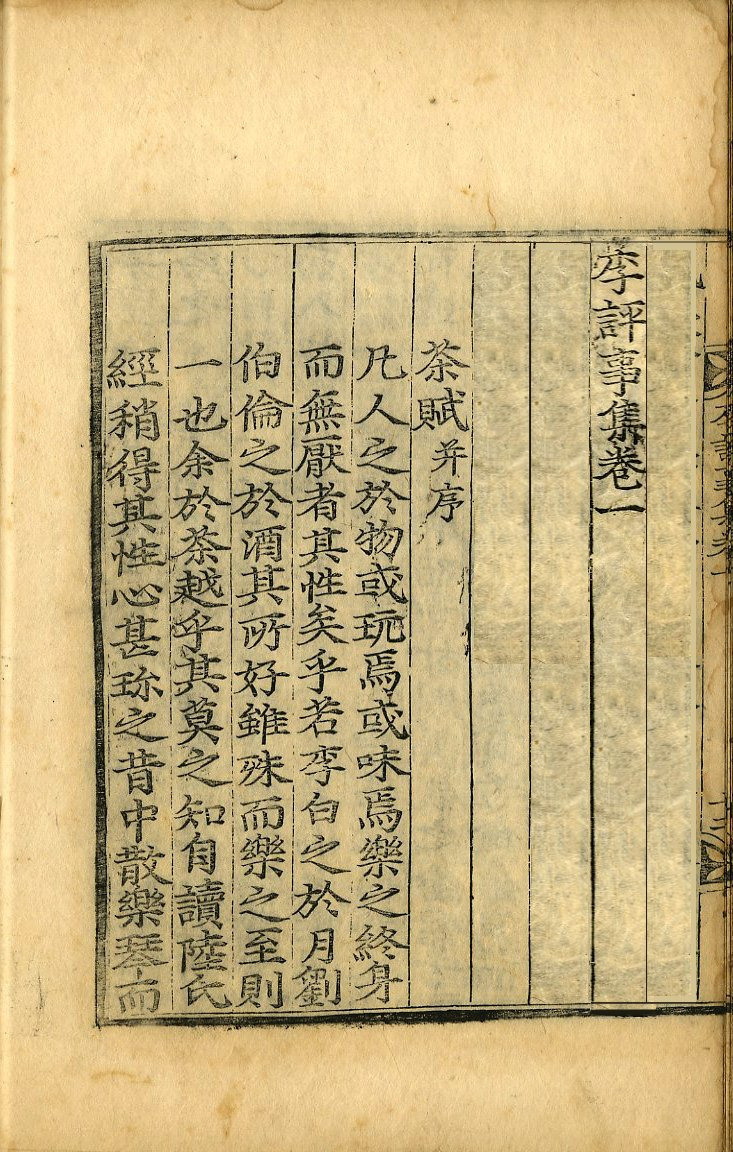 李評事集卷一
茶賦 并序
凡人之於物或玩焉或味焉樂之終身
而無厭者其性矣乎若李白之於月劉
伯倫之於酒其所好雖殊而樂之至則
一也余於茶越乎其莫之知自讀陸氏
經稍得其性心甚珎之昔中散樂琴而